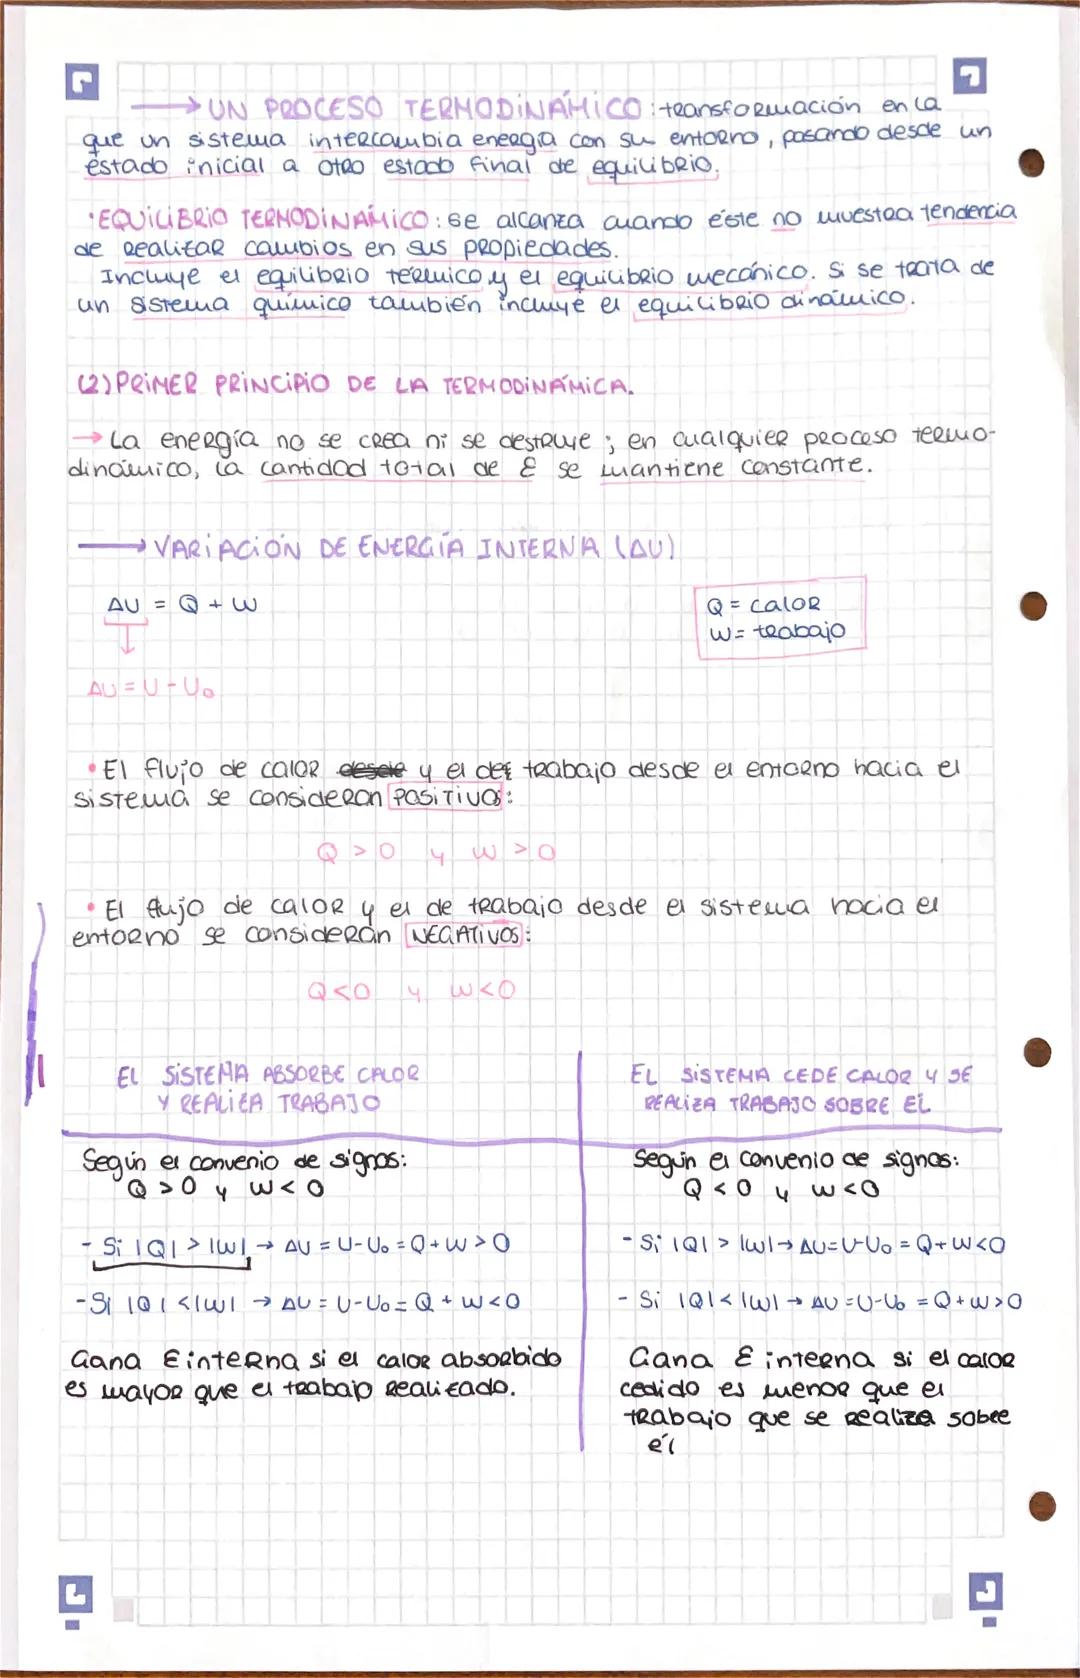 → UN PROCESO TERMODINÁMICO: transformación en la
que un sistema intercambia energía con su entorno, pasando desde un
estado inicial a otro estado final de equilibrio.
·EQUILIBRIO TERMODINÁMICO: se alcanza cuando éste no muestra tendencia
de realizar cambios en sus propiedades.
Incluye el equilibrio térmico y el equilibrio mecánico. Si se trata de
un sistema químico también incluye el equilibrio dinámico.
(2) PRIMER PRINCIPIO DE LA TERMODINÁMICA.
→ La energía no se crea ni se destruye; en cualquier proceso termo-
dinámico, la cantidad total de E se mantiene constante.
→ VARIACIÓN DE ENERGÍA INTERNA (ΔU)
ΔU = Q + W
Q = calor
W = trabajo
ΔU = U - U₀
• El flujo de calor desde y el del trabajo desde el entorno hacia el
sistema se consideran POSITIVOS:
Q > 0 y W > 0
• El flujo de calor y el de trabajo desde el sistema hacia el
entorno se consideran NEGATIVOS:
Q<0 y W<0
EL SISTEMA ABSORBE CALOR
Y REALIZA TRABAJO
Según el convenio de signos:
Q > 0 y W < 0
- Si |Q| > |W| → ΔU = U-U₀ = Q+W > 0
- Si |Q| < |W| → ΔU = U-U₀ = Q + W < 0
Gana E interna si el calor absorbido
es mayor que el trabajo realizado.
EL SISTEMA CEDE CALOR Y SE
REALIZA TRABAJO SOBRE EL
Según el convenio de signos:
Q < 0 y W < 0
- Si |Q| > |W| → ΔU=U-U₀ = Q+W<0
- Si |Q| < |W| → ΔU=U-U₀ = Q+W>0
Gana E interna si el calor
cedido es menor que el
trabajo que se realiza sobre
él